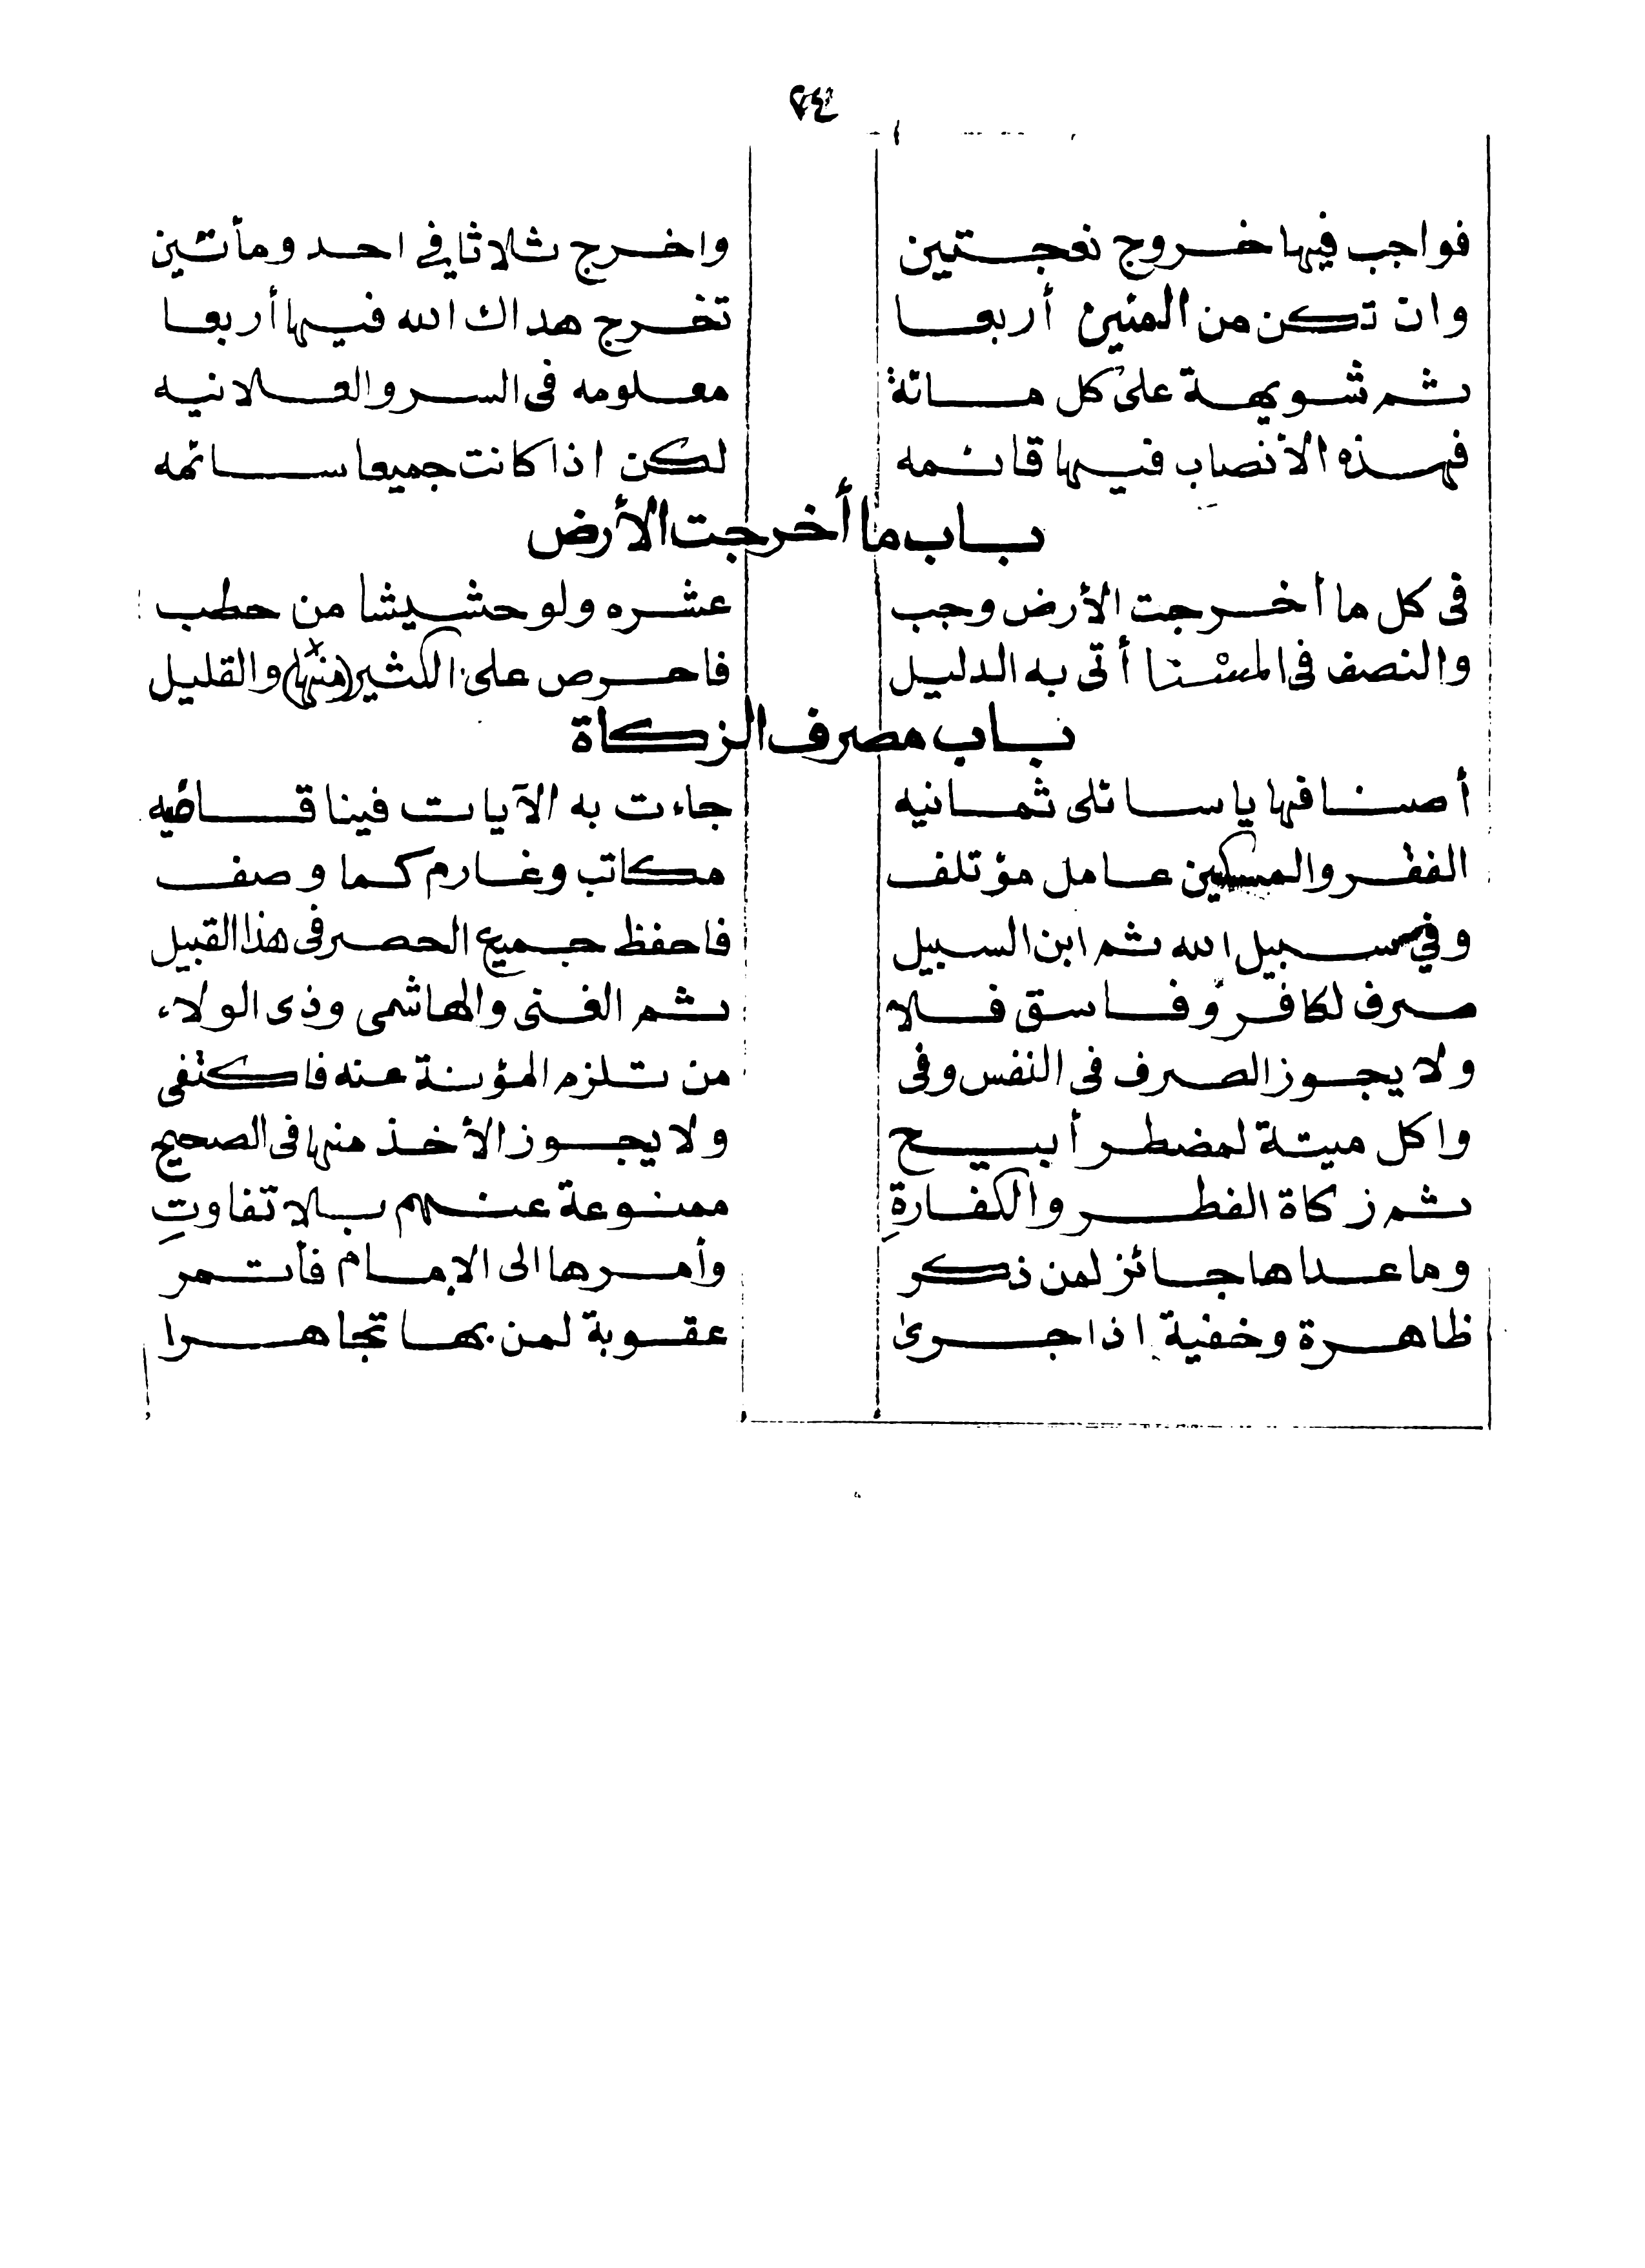 ٢٤
فواجب فيها خروج نعجتين واخرج ثلاثا في احد ومأتين
وان تكن من المئين أربعا تخرج هداك الله فيها أربعا
ثم شويهة على كل مائة معلومه فى السر والعلانيه
فهذه الأنصاب فيها قائمه لكن اذا كانت جميعا سائمه
باب ما أخرجت الأرض
فى كل ما أخرجت الأرض وجب عشره ولو حشيشا من حطب
والنصف فى المسنا أتى به الدليل فاحرص على الكثير (منها) والقليل
باب مصرف الزكاة
أصنافها يا سائلى ثمانيه جاءت به الآيات فينا قاضيه
الفقر والمسكين عامل مؤتلف مكاتب وغارم كما وصف
وفي سبيل الله ثم ابن السبيل فاحفظ جميع الحصر فى هذا القبيل
صرف لكافر وفاسق فلا ثم الغنى والهاشمى وذى الولاء
ولا يجوز الصرف فى النفس وفى من تلزم المؤنة عنه فاكتفى
واكل ميتة لمضطر أبيح ولا يجوز الأخذ منها فى الصحيح
ثم زكاة الفطر والكفارةِ ممنوعة عنهم بلا تفاوتِ
وما عداها جائز لمن ذكر وأمرها الى الإمام فأتمر
ظاهرة وخفية اذا جرى عقوبة لمن بها تجاهرا